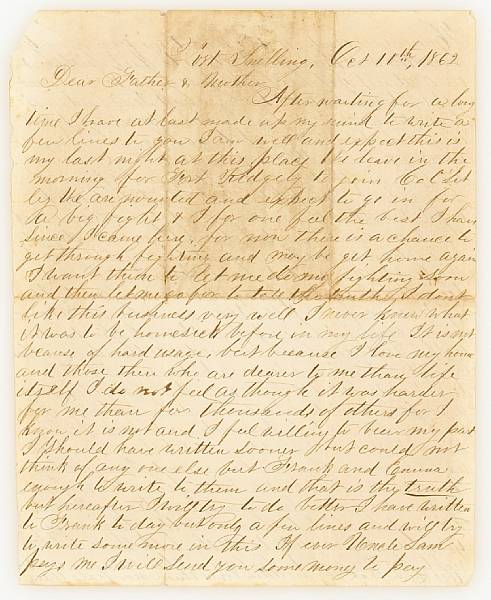 Fort Snelling, Oct 11th, 1862
Dear Father & Mother
After waiting for a long
time I have at last made up my mind to write a
few lines to you I am well and expect this is
my last night at this place We leave in the
morning for Fort Ridgely to join Col Sib
ly the are mounted and expect to go in for
a big fight & I for one feel the best I have
since I came here, for now there is a chance to
get through fighting and may be get home again
I want them to let me do my fighting soon
and then let me go for to tell the truth, I dont
like this business very well I never knew what
it was to be homesick before in my life It is not
because of hard usage, but because I love my home
and those then who are dearer to me than life
itself I do not feel as though it was harder
for me than for thousands of others for I
know it is not and I feel willing to bear my part
I should have written sooner but could not
think of any one else but Frank and Emma
enough to write to them and that is the truth
but hereafter I will try to do better I have written
to Frank to day but only a few lines and will try
to write some more in this If ever Uncle Sam
pays me I will send you some money to pay